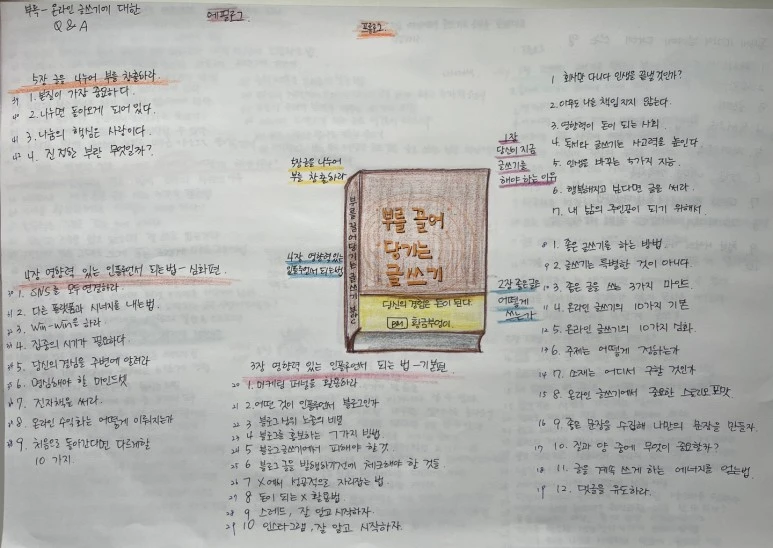 부록 - 온라인 글쓰기에 대한
Q & A
에필로그
프롤로그
5장 글을 나누어 부를 창출하라.
39 1. 본질이 가장 중요하다.
40 2. 나누면 돌아오게 되어있다.
41 3. 나눔의 핵심은 사랑이다.
42 4. 진정한 부란 무엇일까?
4장 영향력 있는 인플루언서 되는법 - 심화편.
30 1. SNS를 모두 연결하라.
31 2. 다른 플랫폼과 시너지를 내는법.
32 3. Win-Win을 하라
33 4. 집중의 시기가 필요하다
34 5. 당신의 경험을 주변에 알려라
35 6. 명심해야 할 마인드셋
36 7. 전자책을 써라.
37 8. 온라인 수익화는 어떻게 이뤄지는가
38 9. 처음으로 돌아간다면 다르게할
10가지.
5장 글을 나누어
부를 창출하라
4장 영향력있는
인플루언서 되는법
부를 끌어당기는 글쓰기
부를 끌어
당기는
글쓰기
당신의 경험은 돈이 된다.
PM 황금부엉이
1장
당신이 지금
글쓰기를
해야 하는 이유
2장 좋은글은
어떻게
쓰는가
1 회사만 다니다 인생을 끝낼것인가?
2. 아무도 나를 책임지지 않는다.
3. 영향력이 돈이 되는 사회.
4. 독서와 글쓰기는 사고력을 높인다
5. 인생을 바꾸는 5가지 지능.
6. 행복해지고 싶다면 글을 써라.
7. 내 삶의 주인공이 되기 위해서
8 1. 좋은 글쓰기를 하는 방법.
9 2 글쓰기는 특별한 것이 아니다.
10 3. 좋은 글을 쓰는 3가지 마인드.
11 4. 온라인 글쓰기의 10가지 기본
12 5. 온라인 글쓰기의 10가지 심화.
13 6. 주제는 어떻게 정하는가
14 7. 소재는 어디서 구할 것인가
15 8. 온라인 글쓰기에서 중요한 스토리오포맷
16 9. 좋은 문장을 수집해 나만의 문장을 만들자.
17 10. 질과 양 중에 무엇이 중요할까?
18 11. 글을 계속 쓰게 하는 에너지를 얻는법.
19 12. 댓글을 유도하라.
3장 영향력 있는 인플루언서 되는 법 - 기본편
20 1. 마케팅 퍼널을 활용하라
21 2 어떤 것이 인플루언서 블로그인가
22 3 블로그 상위 노출의 비밀
23 4 블로그를 홍보하는 7가지 방법.
24 5 블로그글쓰기에서 피해야 할것
25 6 블로그 글을 발행하기전에 체크해야 할 것들
26 7 X에서 성공적으로 자리잡는 법.
27 8 돈이 되는 X 활용법.
28 9 스레드, 잘 알고 시작하자.
29 10 인스타그램, 잘 알고 시작하자.